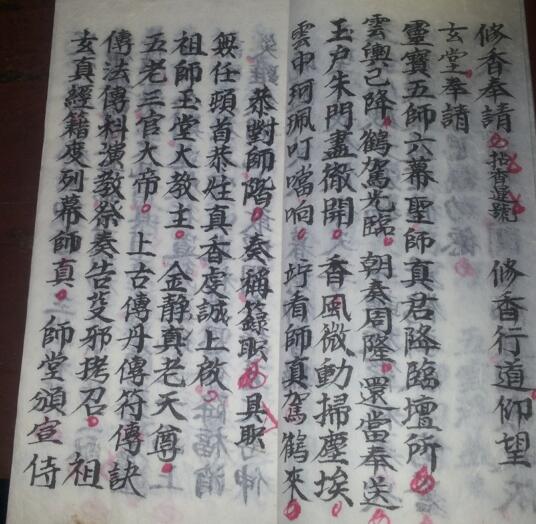 修香奉請 拈香運號 修香行道仰望
玄堂奉請
靈寶五師六幕聖師真君降臨壇所
雲輿已降 鶴駕光臨 朝奏周隆 還當奉送
玉户朱門盡撤開 香風微動掃塵埃
雲中珂珮叮噹响 竚看師真駕鶴來
恭對師階 奏稱籙職 具職
無任頭首恭炷真香虔誠上啟
祖師玉堂大教主 金静真老天尊
五老三官大帝 上古傳丹傳符傳訣
傳法傳科演教祭奏告芟邪拷召 祖
玄真經籍度列幕師真 師堂頒宣侍